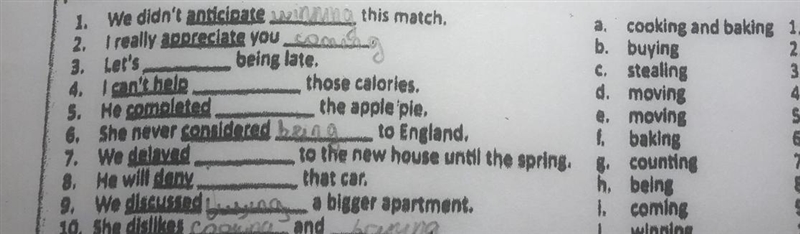 1. We didn't anticipate winning this match.
2. I really appreciate you coming
3. Let's ________ being late.
4. I can't help ________ those calories.
5. He completed ________ the apple pie.
6. She never considered being to England.
7. We delayed ________ to the new house until the spring.
8. He will deny ________ that car.
9. We discussed buying a bigger apartment.
10. She dislikes cooking and
a. cooking and baking 1.
b. buying 2
c. stealing 3
d. moving 4
e. moving 5
f. baking 6
g. counting 7
h. being 8
i. coming 9
winning